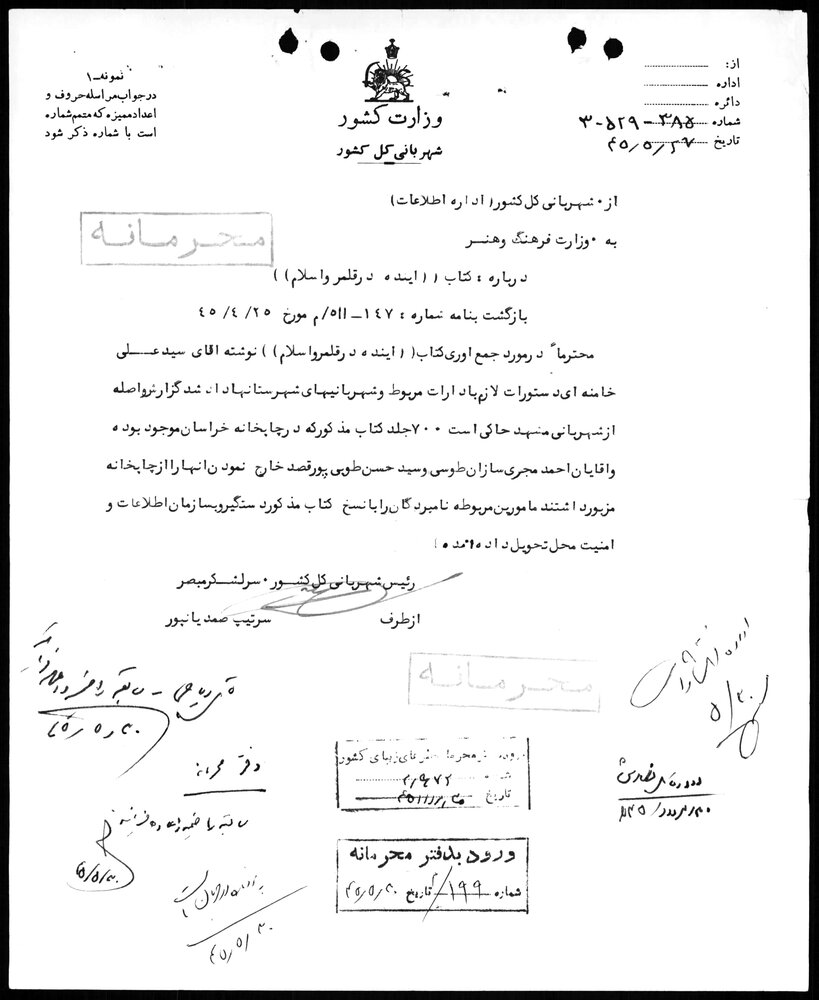 نمونه-۱
در جواب مراسله حروف و
اعداد ممیزه که متمم شماره
است با شماره ذکر شود
وزارت کشور
شهربانی کل کشور
از:
اداره
دائره
شماره ۳۸۵-۵۲۹-۳
تاریخ ۴۵/۵/۲۷
محرمانه
از • شهربانی کل کشور (اداره اطلاعات)
به • وزارت فرهنگ وهنر
درباره : کتاب ((اینده درقلمرواسلام))
بازگشت بنامه شماره : ۱۴۷-۵۱۱/م مورخ ۴۵/۴/۲۵
محترماً درمورد جمع اوری کتاب((اینده درقلمرواسلام)) نوشته اقای سیدعلی
خامنه ای دستورات لازم بادارات مربوط وشهربانیهای شهرستانها داده شد گزارش واصله
ازشهربانی مشهد حاکی است ۷۰۰ جلد کتاب مذکورکه درچاپخانه خراسان موجود بوده
واقایان احمد مجری سازان طوسی وسید حسن طوبی پورقصد خارج نمودن انهاراازچاپخانه
مزبورداشتند مامورین مربوطه نامبردگان رابانسخ کتاب مذکوردستگیروبسازمان اطلاعات و
امنیت محل تحویل داده اند
رئیس شهربانی کل کشور • سرلشکرمبصر
ازطرف سرتیپ صمدیانپور
محرمانه
اداره
۵/۳۰
۴۵/۵/۳۰
دفتر محرمانه
۴۵/۵/۳۰
۴۵/۵/۳۰
هنرهای زیبای کشور
شماره
تاریخ
ورود بدفتر محرمانه
شماره ۱۹۹/م تاریخ ۴۵/۵/۳۰